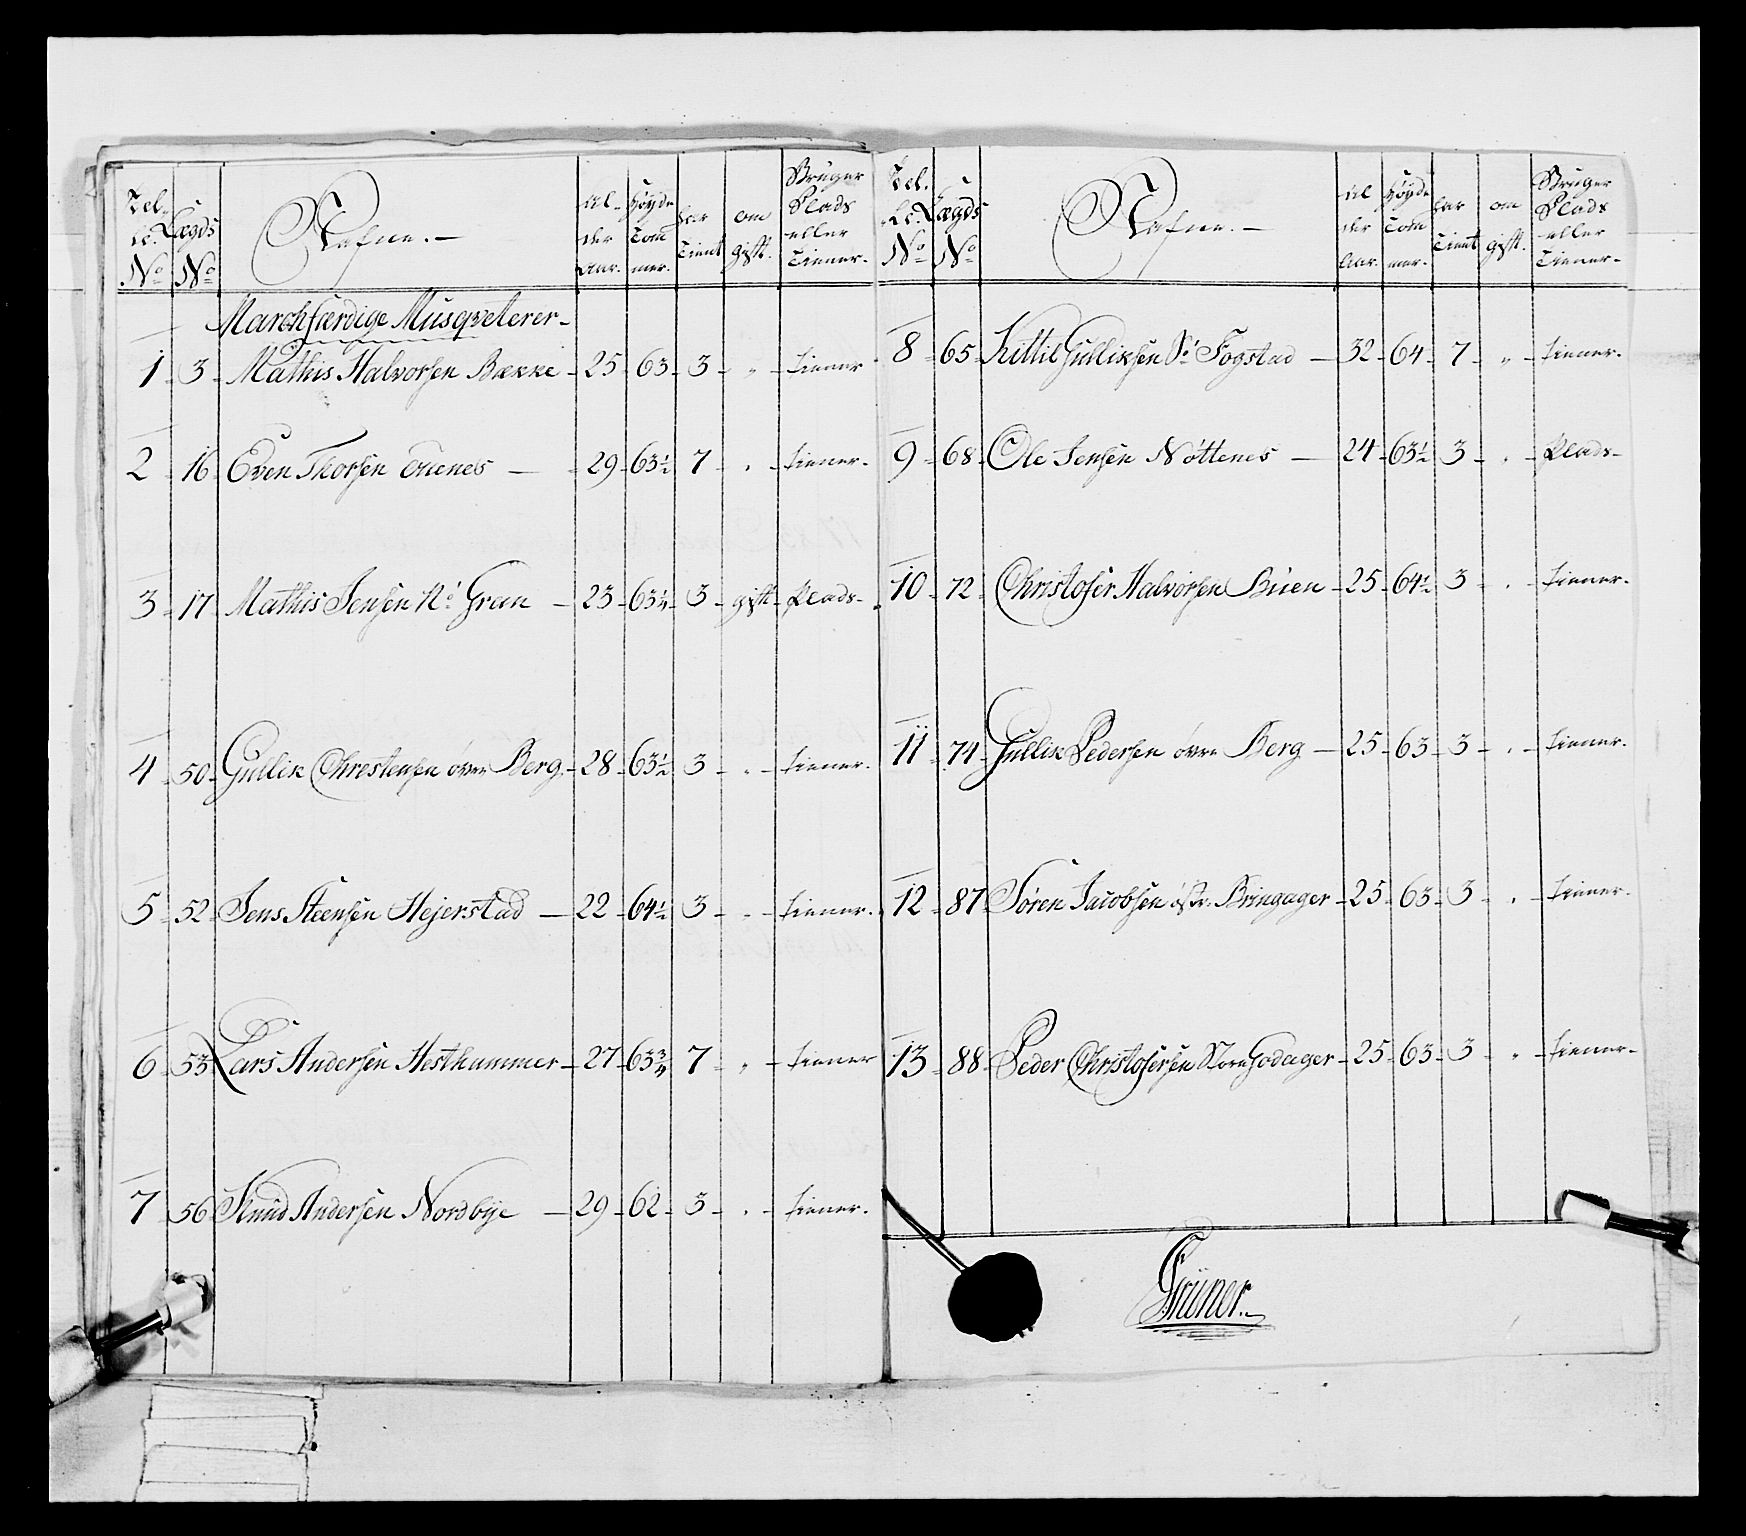 Tel. Lc. No | Lægds No | Nafne. | Al- der Aar. | Høyde Tom mer. | har Tient | om gift. | Bruger Plads eller Tiener.
Marchfærdige Musqveterer
1 3 Mathis Halvorsen Bække 25 63 3 " tiener
2 16 Even Thorsen 29 63½ 7 " tiener
3 17 Mathis Jensen No: Gran 23 63¼ 3 gift Plads
4 50 Gullik Christensen övre Berg 28 63½ 3 " tiener
5 52 Jens Steensen Hejerstad 22 64½ 3 " tiener
6 53 Lars Andersen Hesthammer 27 63¾ 7 " tiener
7 56 Knud Andersen Nordbye 29 62 3 " tiener
Tel. Lc. No | Lægds No | Nafne. | Al der Aar. | Høyde Tom mer. | har Tient | om gift. | Bruger Plads eller Tiener
8 65 Kittil Gulliksen Sö: Fogstad 32 64 7 " tiener
9 68 Ole Jensen Nöttenes 24 63½ 3 " Plads
10 72 Christofer Halvorsen Buen 25 64½ 3 " tiener
11 74 Gullik Pedersen övre Berg 25 63 3 " tiener
12 87 Sören Jacobsen östr. Bringager 25 63 3 " tiener
13 88 Peder Christofersen Store Godager 25 63 3 " tiener
Grüner